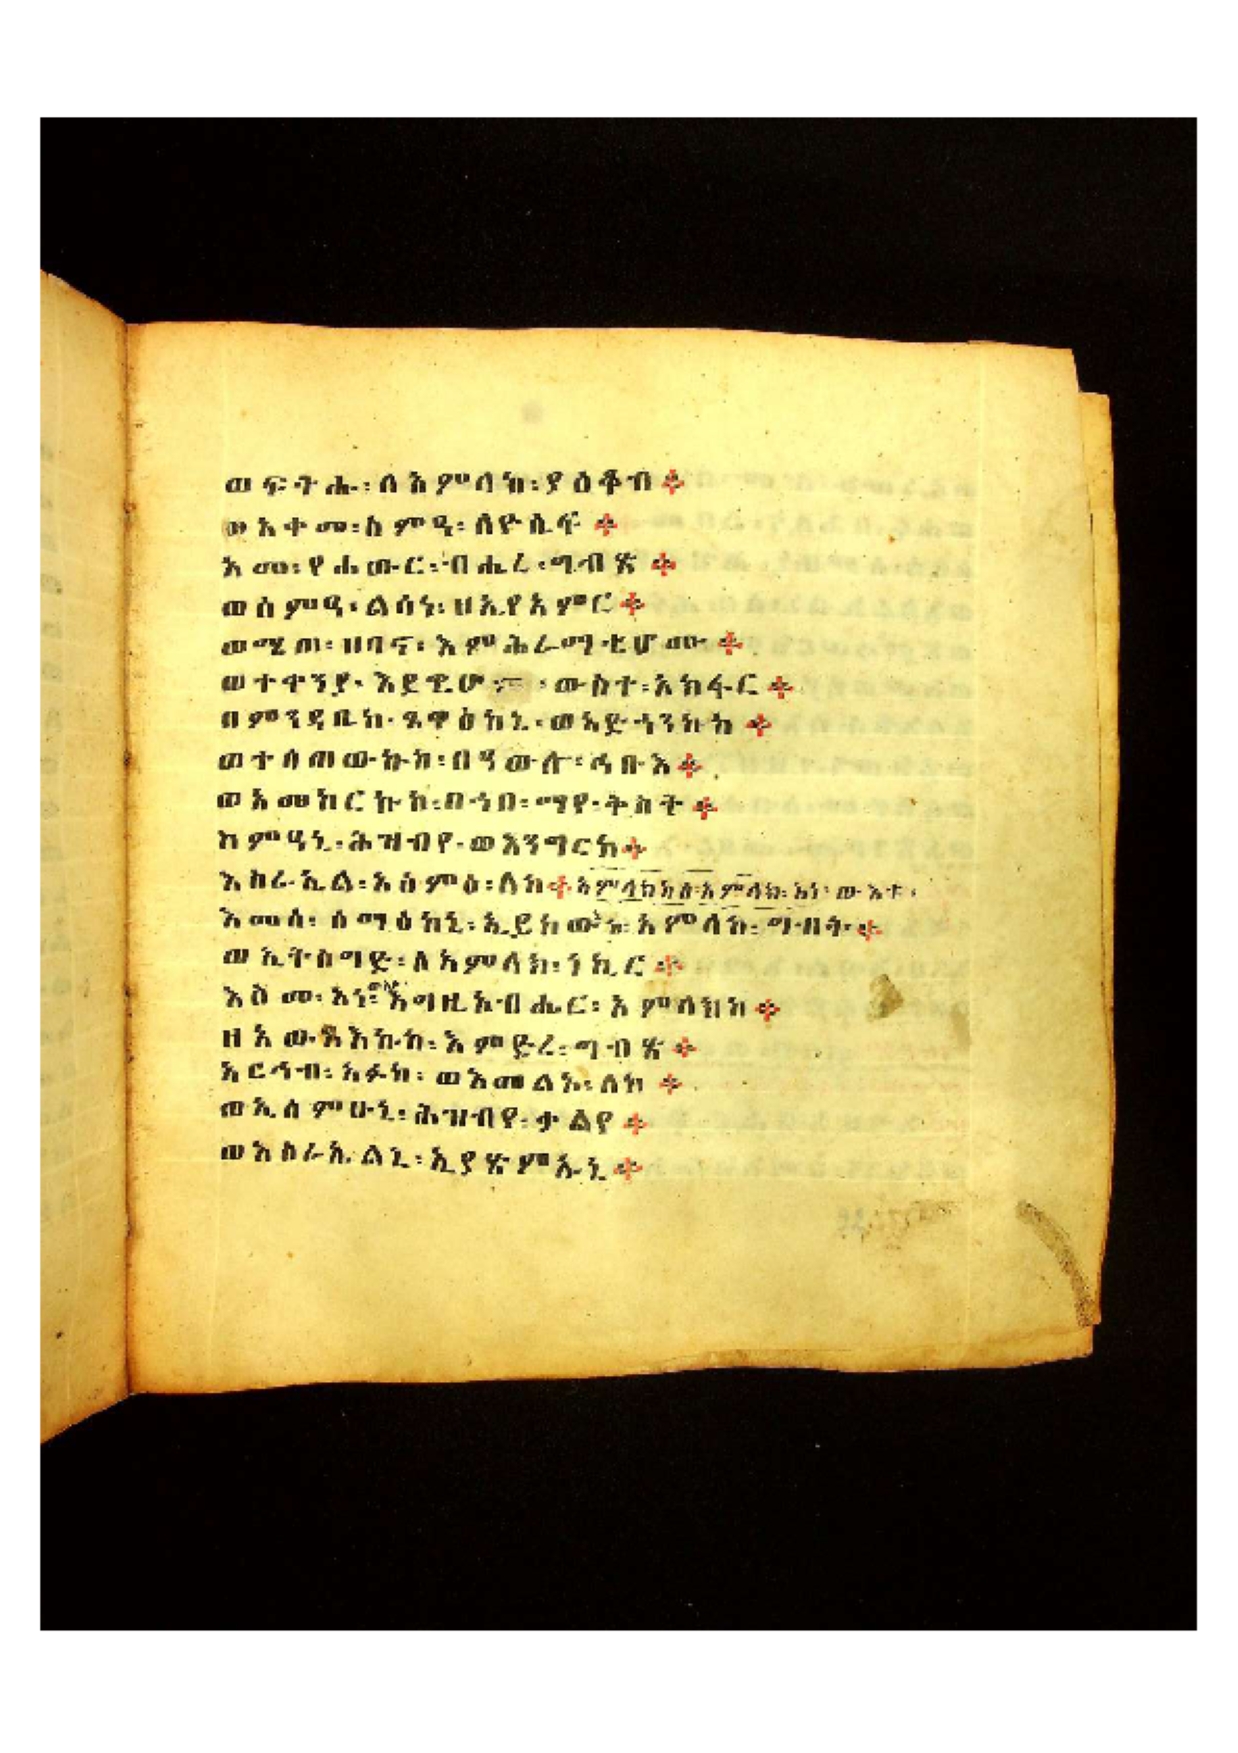 ወፍትሑ፡ለአምላክ፡ያዕቆብ፨
ወአቀመ፡ስምዓ፡ለዮሴፍ፨
አመ፡የሐውር፡ብሔረ፡ግብጽ፨
ወሰምዓ፡ልሳነ፡ዘኢየአምር፨
ወሜጠ፡ዘባኖ፡እምሕራማቲሆሙ፨
ወተቀንያ፡እደዊሆ፡ውስተ፡አክፋር፨
በምንዳቤከ፡ጼዋዕከኒ፡ወአድኃንኩከ፨
ወተሰጠውኩከ፡በዓውሎ፡ኅቡእ፨
ወአመከርኩከ፡በኀበ፡ማየ፡ቅስት፨
ስምዓኒ፡ሕዝብየ፡ወእንግርከ፨
እስራኤል፡አሰምዕ፡ለከ፨አምላክከሰ፡አምላክ፡አነ፡ውእቱ፡
እመሰ፡ሰማዕከኒ፡ኢይከውነከ፡አምላክ፡ግብት፨
ወኢትስግድ፡ለአምላክ፡ነኪር፨
እስመ፡አነ፡እግዚአብሔር፡አምላክከ፨
ዘአውጻእኩከ፡እምድረ፡ግብጽ፨
አርኅብ፡አፉከ፡ወእመልኦ፡ለከ፨
ወኢሰምዑኒ፡ሕዝብየ፡ቃልየ፨
ወእስራኤልኒ፡ኢያጽምኡኒ፨